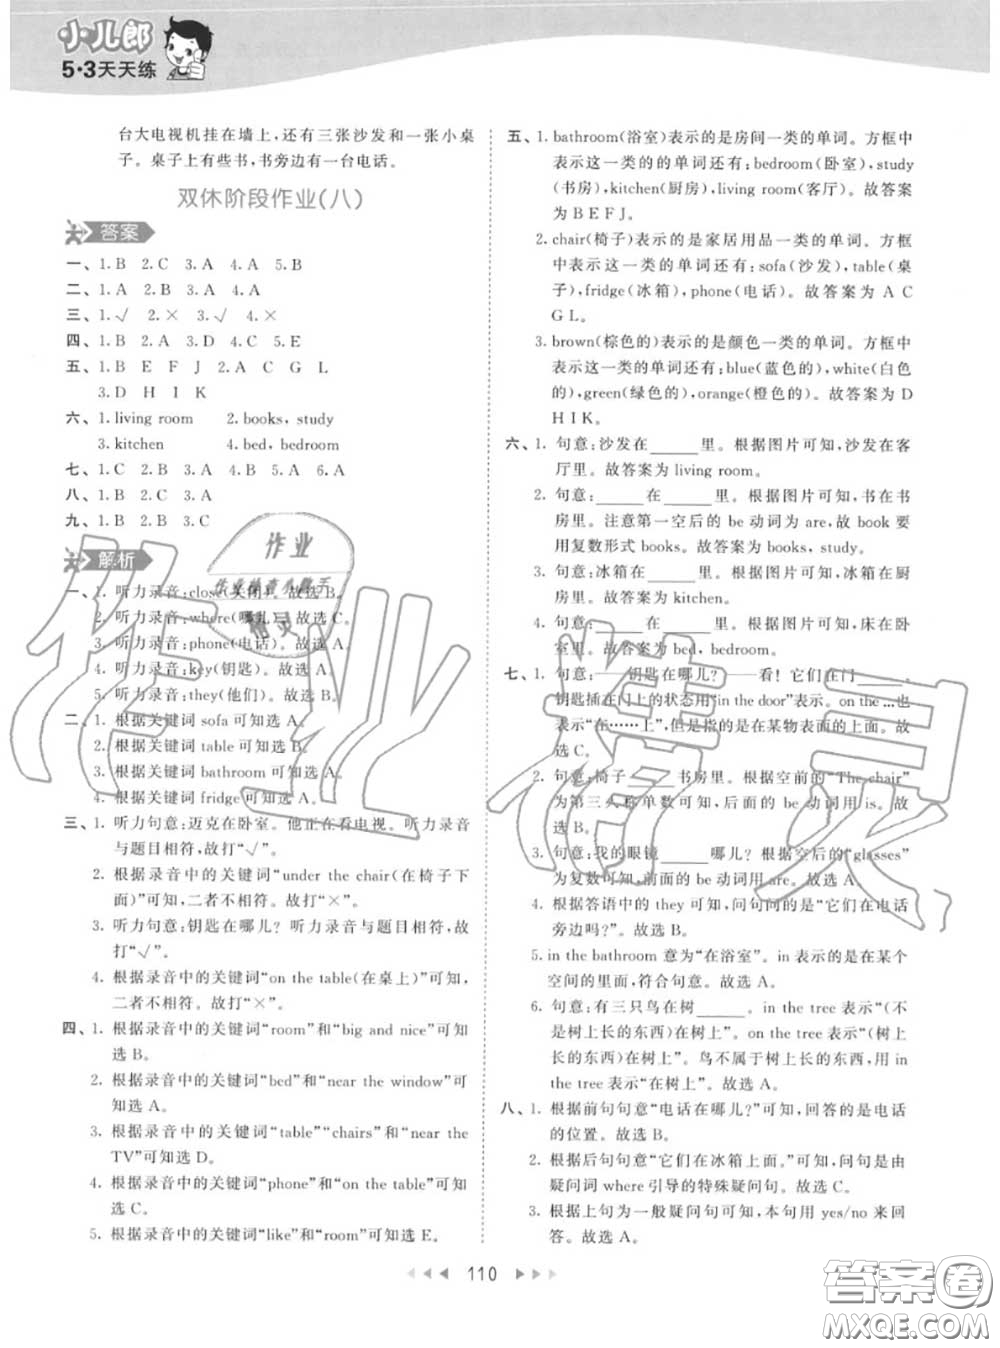 小儿郎
5·3天天练
台大电视机挂在墙上,还有三张沙发和一张小桌
子。桌子上有些书,书旁边有一台电话。
双休阶段作业(八)
答案
一、1.B 2.C 3.A 4.A 5.B
二、1.A 2.B 3.A 4.A
三、1.√ 2.× 3.√ 4.×
四、1.B 2.A 3.D 4.C 5.E
五、1.B E F J 2.A C G L
3.D H I K
六、1.living room 2.books, study
3.kitchen 4.bed, bedroom
七、1.C 2.B 3.A 4.B 5.A 6.A
八、1.B 2.C 3.A
九、1.B 2.B 3.C
解析
一、1. 听力录音:close(关闭)。故选 B。
2. 听力录音:where(哪儿)。故选 C。
3. 听力录音:phone(电话)。故选 A。
4. 听力录音:key(钥匙)。故选 A。
5. 听力录音:they(他们)。故选 B。
二、1. 根据关键词 sofa 可知选 A。
2. 根据关键词 table 可知选 B。
3. 根据关键词 bathroom 可知选 A。
4. 根据关键词 fridge 可知选 A。
三、1. 听力句意:迈克在卧室。他正在看电视。听力录音
与题目相符,故打“√”。
2. 根据录音中的关键词“under the chair(在椅子下
面)”可知,二者不相符。故打“×”。
3. 听力句意:钥匙在哪儿?听力录音与题目相符,故
打“√”。
4. 根据录音中的关键词“on the table(在桌上)”可知,
二者不相符。故打“×”。
四、1. 根据录音中的关键词“room”和“big and nice”可知
选 B。
2. 根据录音中的关键词“bed”和“near the window”可
知选 A。
3. 根据录音中的关键词“table”“chairs”和“near the
TV”可知选 D。
4. 根据录音中的关键词“phone”和“on the table”可知
选 C。
5. 根据录音中的关键词“like”和“room”可知选 E。
五、1. bathroom(浴室)表示的是房间一类的单词。方框中
表示这一类的的单词还有:bedroom(卧室),study
(书房),kitchen(厨房),living room(客厅)。故答案
为 B E F J。
2. chair(椅子)表示的是家居用品一类的单词。方框
中表示这一类的单词还有:sofa(沙发),table(桌
子),fridge(冰箱),phone(电话)。故答案为 A C
G L。
3. brown(棕色的)表示的是颜色一类的单词。方框中
表示这一类的单词还有:blue(蓝色的),white(白色
的),green(绿色的),orange(橙色的)。故答案为 D
H I K。
六、1. 句意:沙发在______里。根据图片可知,沙发在客
厅里。故答案为 living room。
2. 句意:______在______里。根据图片可知,书在书
房里。注意第一空后的 be 动词为 are,故 book 要
用复数形式 books。故答案为 books, study。
3. 句意:冰箱在______里。根据图片可知,冰箱在厨
房里。故答案为 kitchen。
4. 句意:______在______里。根据图片可知,床在卧
室里。故答案为 bed, bedroom。
七、1. 句意:——钥匙在哪儿?——看!它们在门______。
钥匙插在门上的状态用“in the door”表示。on the …也
表示“在……上”,但是指的是在某物表面的上面。故
选 C。
2. 句意:椅子______书房里。根据空前的“The chair”
为第三人称单数可知,后面的 be 动词用 is。故
选 B。
3. 句意:我的眼镜______哪儿?根据空后的“glasses”
为复数可知,前面的 be 动词用 are。故选 A。
4. 根据答语中的 they 可知,问句问的是“它们在电话
旁边吗?”。故选 B。
5. in the bathroom 意为“在浴室”。in表示的是在某个
空间的里面,符合句意。故选 A。
6. 句意:有三只鸟在树______。in the tree 表示“(不
是树上长的东西)在树上”。on the tree 表示“(树上
长的东西)在树上”。鸟不属于树上长的东西,用 in
the tree 表示“在树上”。故选 A。
八、1. 根据前句句意“电话在哪儿?”可知,回答的是电话
的位置。故选 B。
2. 根据后句句意“它们在冰箱上面。”可知,问句是由
疑问词 where 引导的特殊疑问句。故选 C。
3. 根据上句为一般疑问句可知,本句用 yes/no 来回
答。故选 A。
110
作业
作业检查小助手
精灵
作业精灵
答案卷
MXQE.COM